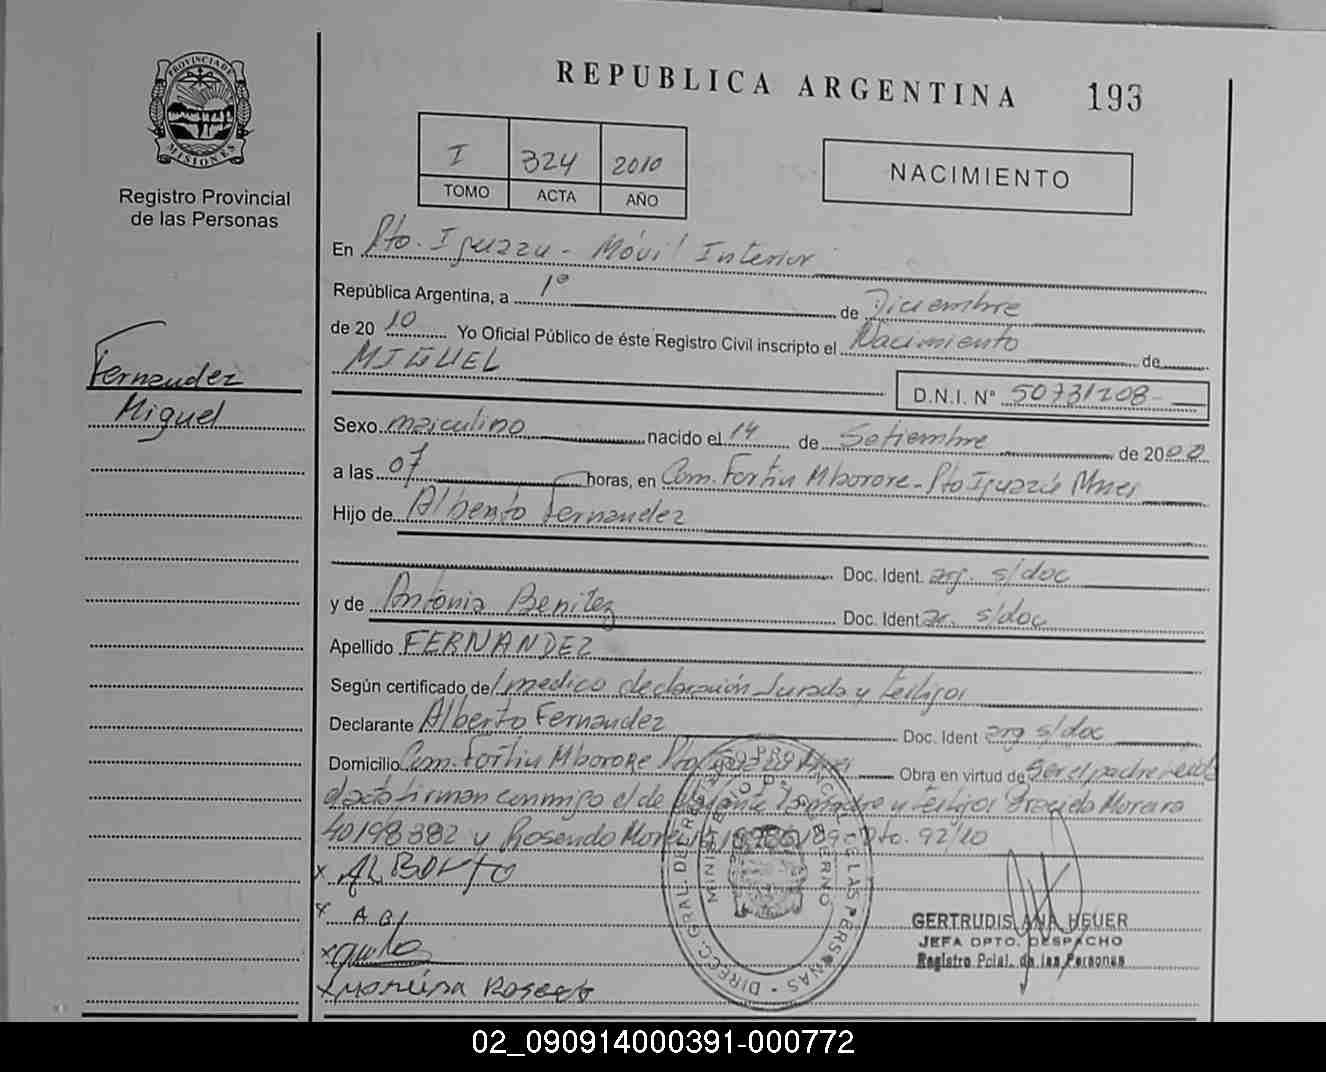 PROVINCIA DE
MISIONES
Registro Provincial
de las Personas
REPUBLICA ARGENTINA 193
I 324 2010
TOMO ACTA AÑO
NACIMIENTO
En Pto. Iguazu - Móvil Interior
República Argentina, a 1º de Diciembre
de 2010 Yo Oficial Público de éste Registro Civil inscripto el Nacimiento de
MIGUEL
D.N.I. Nº 50731208
Fernandez
Miguel
Sexo masculino nacido el 14 de Setiembre de 20
a las 07 horas, en Com. Fortin Mborore - Pto Iguazú Mnes
Hijo de Alberto Fernandez
Doc. Ident. arg. s/doc
y de Antonia Benitez Doc. Ident. ar. s/doc
Apellido FERNANDEZ
Según certificado del medico declaración Jurada y testigos
Declarante Alberto Fernandez Doc. Ident arg s/doc
Domicilio Com. Fortin Mborore Pto Obra en virtud de Ser el padre
acta firman conmigo el la madre y testigos Moreira
40198382 y Rosendo Dto. 92/10
x ALBERTO
x A.B.
x
x moreira
DIRECC. GRAL. DE REGISTRO PROVINCIAL DE LAS PERSONAS
MINISTERIO DE GOBIERNO
GERTRUDIS ANA HEUER
JEFA DPTO. DESPACHO
Registro Pcial. de las Personas
02_090914000391-000772